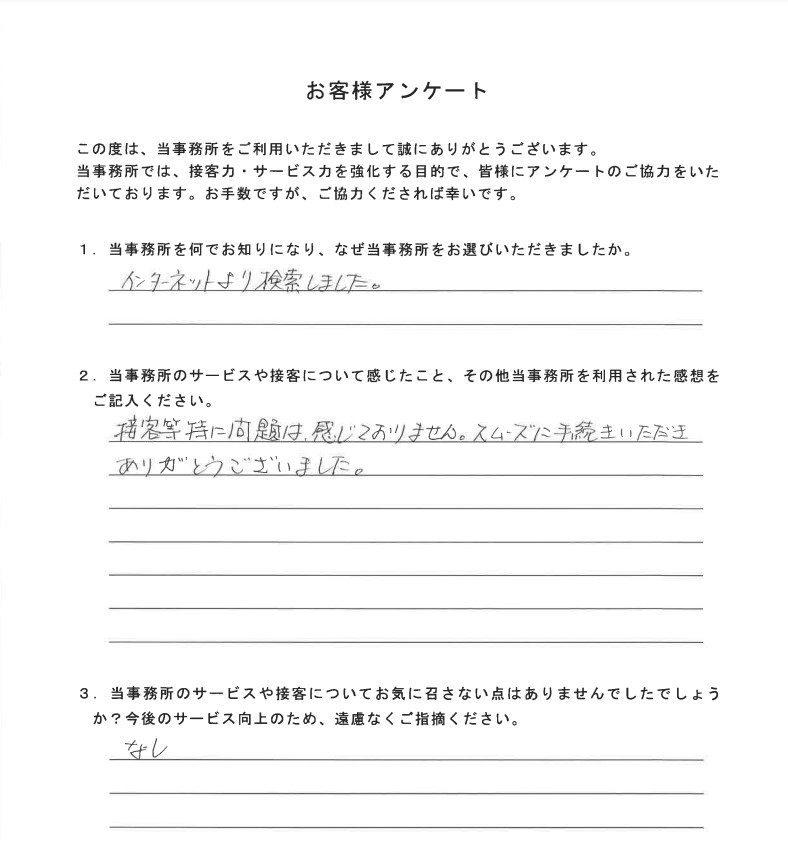 お客様アンケート
この度は、当事務所をご利用いただきまして誠にありがとうございます。
当事務所では、接客力・サービス力を強化する目的で、皆様にアンケートのご協力をいた
だいております。お手数ですが、ご協力くだされば幸いです。
１．当事務所を何でお知りになり、なぜ当事務所をお選びいただきましたか。
インターネットより検索しました。
２．当事務所のサービスや接客について感じたこと、その他当事務所を利用された感想を
ご記入ください。
接客等特に問題は、感じておりません。スムーズに手続きいただき
ありがとうございました。
３．当事務所のサービスや接客についてお気に召さない点はありませんでしたでしょう
か？今後のサービス向上のため、遠慮なくご指摘ください。
なし